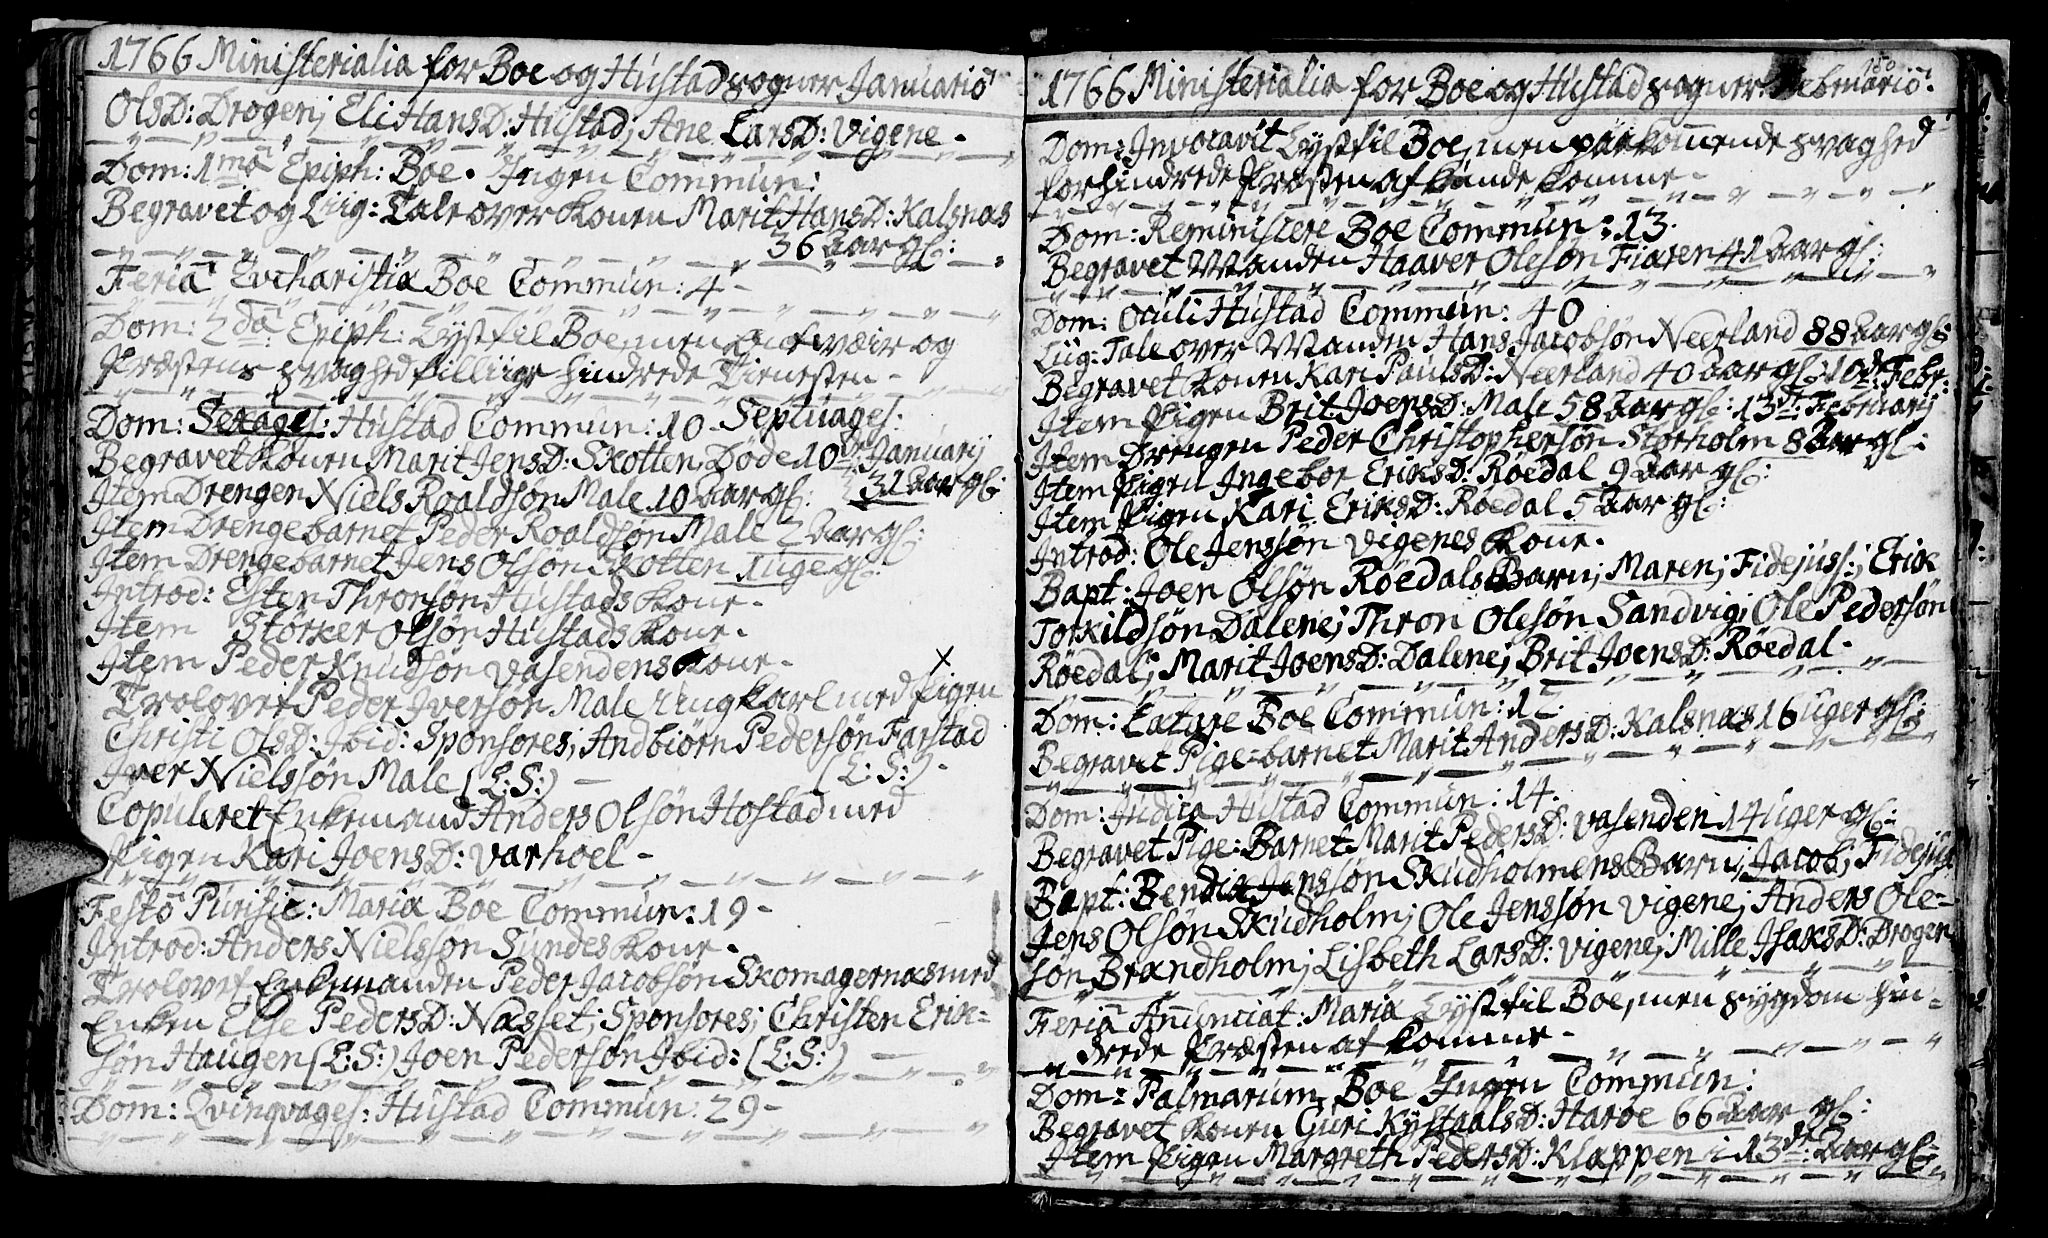 1766 Ministerialia for Boe og Hustad sogner Januario
OlsD: Drogen; Eli HansD: Hustad; Ane LarsD: Vigene -
Dom: 1ma Epiph: Boe. Ingen Commun:
Begravet og Liig: Tale over Konen Marit HansD: Kalsnas
36 Aar gl:
Feria Evcharistia Boe Commun: 4 -
Dom: 2da Epiph: Lyst til Boe, men Veir og
Præstens svaghed tillige hindrede Tienesten -
Dom: Sexages: Hustad Commun: 10 - Septuages:
Begravet Konen Marit JensD: Skotten, Døde 10de Januarij
31 Aar gl:
Item Drengen Niels Roaldsøn Male 10 Aar gl:
Item Drengebarnet Peder Roaldsøn Male 2 Aar gl:
Item Drengebarnet Jens Olsøn Skotten 1 uge gl:
Introd: Esten Thronsøn Hustads Kone -
Item Størker Olsøn Hustads Kone -
Item Peder Knudsøn Vasendens Kone -
Trolovet Peder Iversøn Male Ung karl med Pigen
Christi OlsD: Ibid: Sponsores; Andbiørn Pedersøn Farstad
Iver Nielssøn Male (L:S:) - (L:S:) -
Copuleret Enkemand Anders Olsøn Hostad med
Pigen Kari JoensD: Varhoel -
Festo Purific: Maria Boe Commun: 19 -
Introd: Anders Nielssøn Sundes Kone -
Trolovet Enkemanden Peder Jacobsøn Skomagernas med
Enken Else PedersD: Nasset; Sponsores; Christen Erik=
søn Haugen (L:S:) Joen Pedersøn Ibid: (L:S:) -
Dom: Qvinqvages: Hustad Commun: 29 -
150
1766 Ministerialia for Boe og Hustad sogner: Februario:
Dom: Invocavit Lyst til Boe, men paakomende svaghed
forhindrede Præsten at kunde komme -
Dom: Reminiscere Boe Commun: 13.
Begravet Manden Haaver Olesøn Fiaren 41 Aar gl:
Dom: Oculi Hustad Commun: 40
Liig: Tale over Manden Hans Jacobsøn Neerland 88 Aar gl:
Begravet Konen Kari PaulsD: Neerland 40 Aar gl: 10de Febr:
Item Pigen Brit JoensD: Male 58 Aar gl: 13de Februarij
Item Drengen Peder Christophersøn Storholm 8 Aar gl:
Item Pigen Ingebor EriksD: Røedal 9 Aar gl:
Item Pigen Kari EriksD: Røedal 5 Aar gl:
Introd: Ole Jenssøn Vigenes Kone.
Bapt: Joen Olsøn Røedals Barn; Maren; Fidejuss:; Erik
Torkildsøn Dalene; Thron Olesøn Sandvig; Ole Pedersøn
Røedal; Marit JoensD: Dalene; Brit JoensD: Røedal -
Dom: Latare Boe Commun: 12.
Begravet Pige=barnet Marit AndersD: Kalsnas 16 Uger gl:
Dom: Judica Hustad Commun: 14.
Begravet Pige: Barnet Marit PedersD: Vasenden 14 Uger gl:
Bapt: Bendix Jenssøn Skudholmens Barn; Jacob; Fidejus
Jens Olsøn Skudholm; Ole Jenssøn Vigene; Anders Ole=
søn Brandholm; Lisbeth LarsD: Vigene; Mille IsaksD: Drogen
Feria Anunciat: Maria Lyst til Boe, men sygdom hin=
drede Præsten at komme -
Dom: Palmarum Boe Ingen Commun:
Begravet Konen Guri KystaalsD: Harøe 66 Aar gl:
Item Pigen Margreth PedersD: Klappen i 13de: Aar gl: